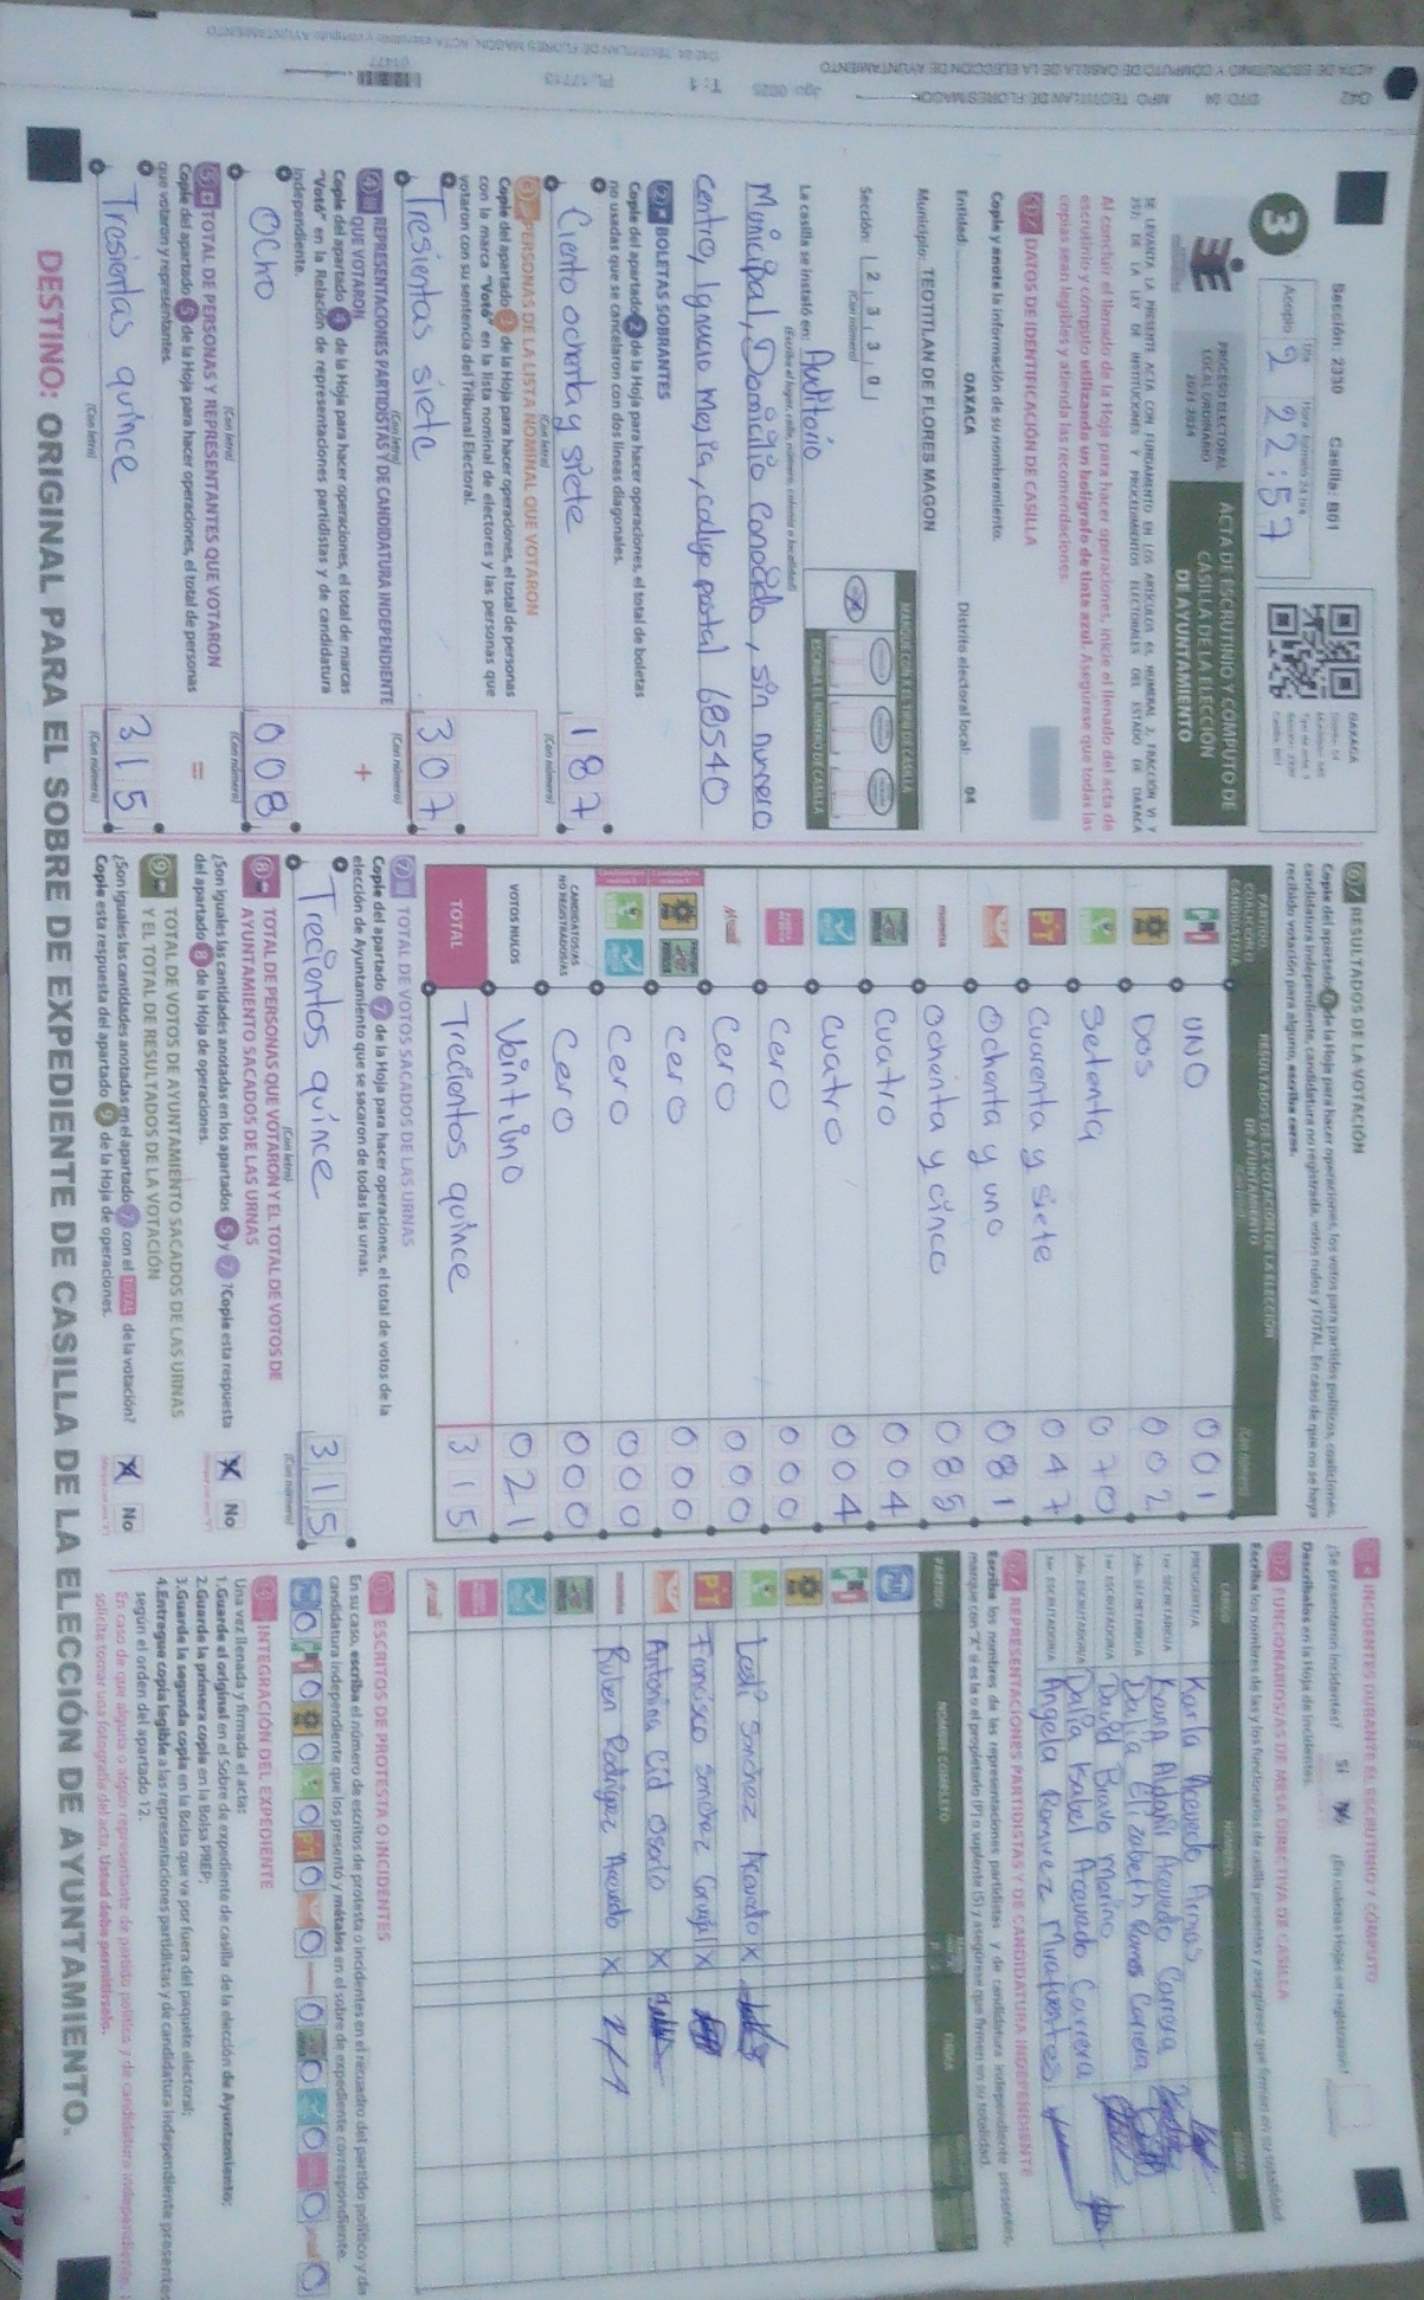 3
Sección: 2330 Casilla: B01
Acopio
2 22:57
OAXACA
PROCESO ELECTORAL
LOCAL ORDINARIO
2023-2024
ACTA DE ESCRUTINIO Y CÓMPUTO DE
CASILLA DE LA ELECCIÓN
DE AYUNTAMIENTO
SE LEVANTA LA PRESENTE ACTA CON FUNDAMENTO EN LOS ARTÍCULOS
DE LA LEY DE INSTITUCIONES Y PROCEDIMIENTOS ELECTORALES DEL ESTADO DE OAXACA
Al concluir el llenado de la Hoja para hacer operaciones, inicie el llenado del acta de
escrutinio y cómputo utilizando un bolígrafo de tinta azul. Asegúrese que todas las
copias sean legibles y atienda las recomendaciones.
1 DATOS DE IDENTIFICACIÓN DE CASILLA
Copie y anote la información de su nombramiento.
Entidad: OAXACA Distrito electoral local: 04
Municipio: TEOTITLAN DE FLORES MAGON
MARQUE CON X EL TIPO DE CASILLA
Sección: 2 3 3 0
(Con número)
X
ESCRIBA EL NÚMERO DE CASILLA
La casilla se instaló en: Auditorio
(Escriba el lugar, calle, número, colonia o localidad)
Municipal, Domicilio Conocido, sin numero
centro, Ignacio Mejia, codigo postal 68540
2 BOLETAS SOBRANTES
Copie del apartado 2 de la Hoja para hacer operaciones, el total de boletas
no usadas que se cancelaron con dos líneas diagonales.
Ciento ochenta y siete 187
(Con letra) (Con número)
3 PERSONAS DE LA LISTA NOMINAL QUE VOTARON
Copie del apartado 3 de la Hoja para hacer operaciones, el total de personas
con la marca "Votó" en la lista nominal de electores y las personas que
votaron con su sentencia del Tribunal Electoral.
Tresientas siete 307
(Con letra) (Con número)
+
4 REPRESENTACIONES PARTIDISTAS Y DE CANDIDATURA INDEPENDIENTE
QUE VOTARON
Copie del apartado 4 de la Hoja para hacer operaciones, el total de marcas
"Votó" en la Relación de representaciones partidistas y de candidatura
independiente.
OCHO 008
(Con letra) (Con número)
=
5 TOTAL DE PERSONAS Y REPRESENTANTES QUE VOTARON
Copie del apartado 5 de la Hoja para hacer operaciones, el total de personas
que votaron y representantes.
Tresientas quince 315
(Con letra) (Con número)
6 RESULTADOS DE LA VOTACIÓN
Copie del apartado 6 de la Hoja para hacer operaciones, los votos para partidos políticos, coaliciones,
candidatura independiente, candidatura no registrada, votos nulos y TOTAL. En caso de que no se haya
recibido votación para alguno, escriba ceros.
PARTIDO, COALICIÓN O CANDIDATO/A
RESULTADOS DE LA VOTACIÓN DE LA ELECCIÓN
DE AYUNTAMIENTO
PRI UNO 001
DOS 002
Setenta 070
PT Cuarenta y siete 047
Ochenta y uno 081
morena Ochenta y cinco 085
cuatro 004
cuatro 004
cero 000
cero 000
cero 000
cero 000
CANDIDATOS/AS
NO REGISTRADOS/AS cero 000
VOTOS NULOS Veintiuno 021
TOTAL Trecientos quince 315
7 TOTAL DE VOTOS SACADOS DE LAS URNAS
Copie del apartado 7 de la Hoja para hacer operaciones, el total de votos de la
elección de Ayuntamiento que se sacaron de todas las urnas.
Trecientos quince 315
(Con letra) (Con número)
8 TOTAL DE PERSONAS QUE VOTARON Y EL TOTAL DE VOTOS DE
AYUNTAMIENTO SACADOS DE LAS URNAS
¿Son iguales las cantidades anotadas en los apartados 5 y 7 ? Copie esta respuesta
del apartado 8 de la Hoja de operaciones.
X No
9 TOTAL DE VOTOS DE AYUNTAMIENTO SACADOS DE LAS URNAS
Y EL TOTAL DE RESULTADOS DE LA VOTACIÓN
¿Son iguales las cantidades anotadas en el apartado 7 con el TOTAL de la votación?
Copie esta respuesta del apartado 9 de la Hoja de operaciones.
X No
INCIDENTES DURANTE EL ESCRUTINIO Y CÓMPUTO
¿Se presentaron incidentes? Sí
¿En cuántas Hojas se registraron?
Descríbalos en la Hoja de incidentes.
FUNCIONARIOS/AS DE MESA DIRECTIVA DE CASILLA
Escriba los nombres de las y los funcionarios de casilla presentes y asegúrese que firmen en su totalidad.
CARGO NOMBRES FIRMAS
PRESIDENTE/A Karla Acevedo Armas
1er. SECRETARIO/A Karina Aldahir Acevedo Carrera
2do. SECRETARIO/A Dalia Elizabeth Ramos Carrera
1er. ESCRUTADOR/A David Bravo Marino
2do. ESCRUTADOR/A Dalia Isabel Acevedo Carrera
3er. ESCRUTADOR/A Angela Ramirez Mirafuentes
REPRESENTACIONES PARTIDISTAS Y DE CANDIDATURA INDEPENDIENTE
Escriba los nombres de las representaciones partidistas y de candidatura independiente presentes,
marque con "X" si es la o el propietario (P) o suplente (S) y asegúrese que firmen en su totalidad.
PARTIDO NOMBRE COMPLETO FIRMA
PAN
PRI
Lesli Sanchez Acevedo X
PT Francisco Sanchez Carvajal X
Antonina Cid Osorio X
morena Ruben Rodriguez Acevedo X
ESCRITOS DE PROTESTA O INCIDENTES
En su caso, escriba el número de escritos de protesta o incidentes en el recuadro del partido político y de
candidatura independiente que los presentó y métalos en el sobre de expediente correspondiente.
0 0 0 0 0 0 0 0 0 0 0
INTEGRACIÓN DEL EXPEDIENTE
Una vez llenada y firmada el acta:
1.Guarde el original en el Sobre de expediente de casilla de la elección de Ayuntamiento;
2.Guarde la primera copia en la Bolsa PREP;
3.Guarde la segunda copia en la Bolsa que va por fuera del paquete electoral;
4.Entregue copia legible a las representaciones partidistas y de candidatura independiente presentes
según el orden del apartado 12.
En caso de que alguna o algún representante de partido político y de candidatura independiente
solicite tomar una fotografía del acta, Usted debe permitírselo.
DESTINO: ORIGINAL PARA EL SOBRE DE EXPEDIENTE DE CASILLA DE LA ELECCIÓN DE AYUNTAMIENTO.
ACTA DE ESCRUTINIO Y COMPUTO DE CASILLA DE LA ELECCION DE AYUNTAMIENTO
042 DTTO: 04 MPO: TEOTITLAN DE FLORES MAGON
Jgo: 0025 T: 1 PL:17713
01477